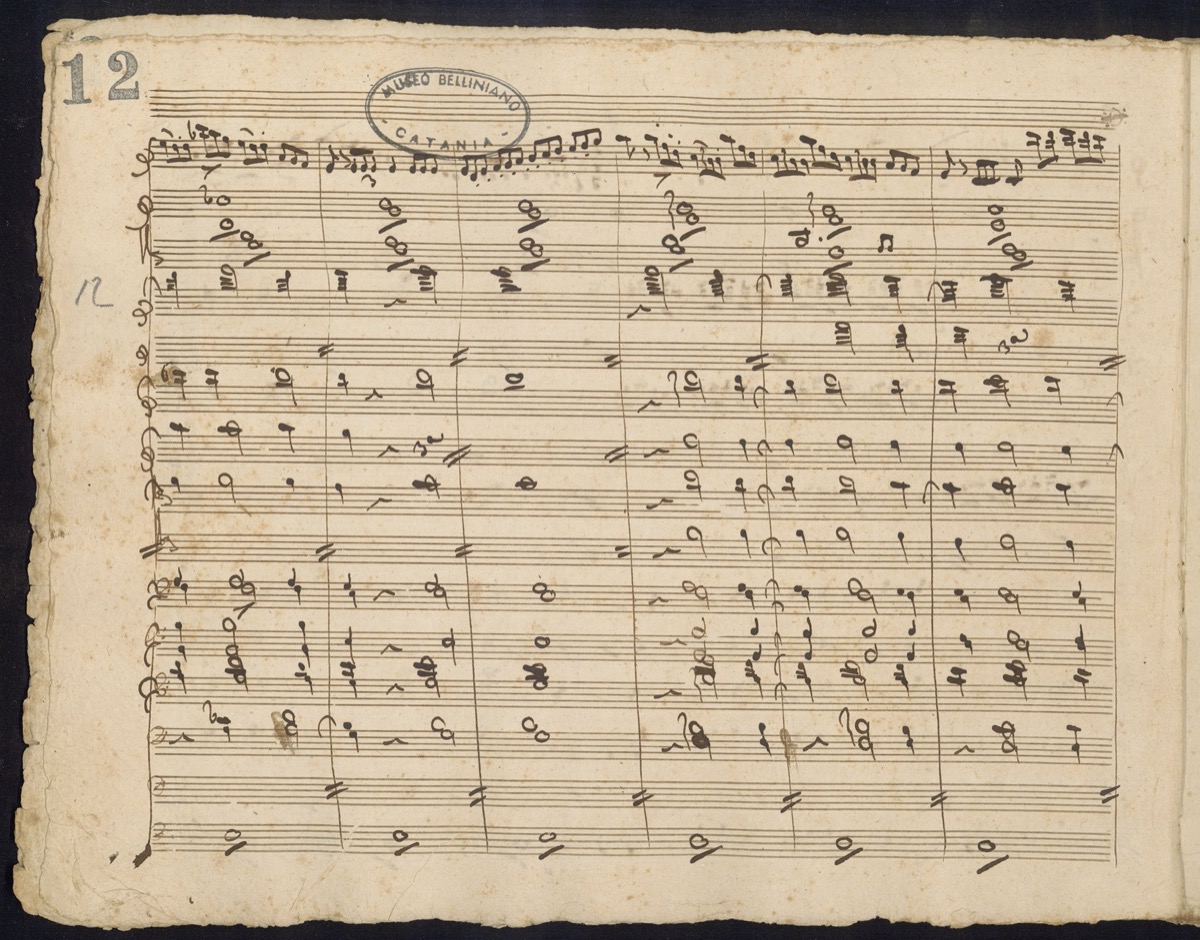 12
MUSEO BELLINIANO
- CATANIA -
12